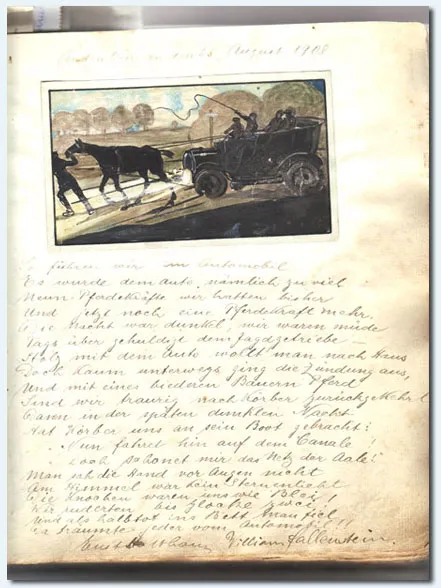 August 1908
So fuhren wir im Automobil
Es wurde dem Auto, nämlich zu viel
Neun Pferdekräfte wir hatten bisher
Und jetzt noch eine Pferdekraft mehr.
Die Nacht war dunkel, wir waren müde
Tags über gehuldigt dem Jagdgetriebe –
Stolz mit dem Auto wollt man nach Haus
Doch kaum unterwegs ging die Zündung aus,
Und mit eines biederen Bauern Pferd
Sind wir traurig nach Körber zurückgekehrt
Dann in der späten dunklen Nacht
Hat Körber uns an sein Boot gebracht:
Nun fahret hin auf dem Canale!
Doch schonet mir das Netz der Aale!
Man sah die Hand vor Augen nicht
Am Himmel war kein Sternenlicht
Die Knochen waren uns wie Blei!
Wir ruderten bis Glocke zwei
Und als halbtot ins Bett man fiel
Da träumte jeder vom Automobil!!
Ernst William Hallenstein.